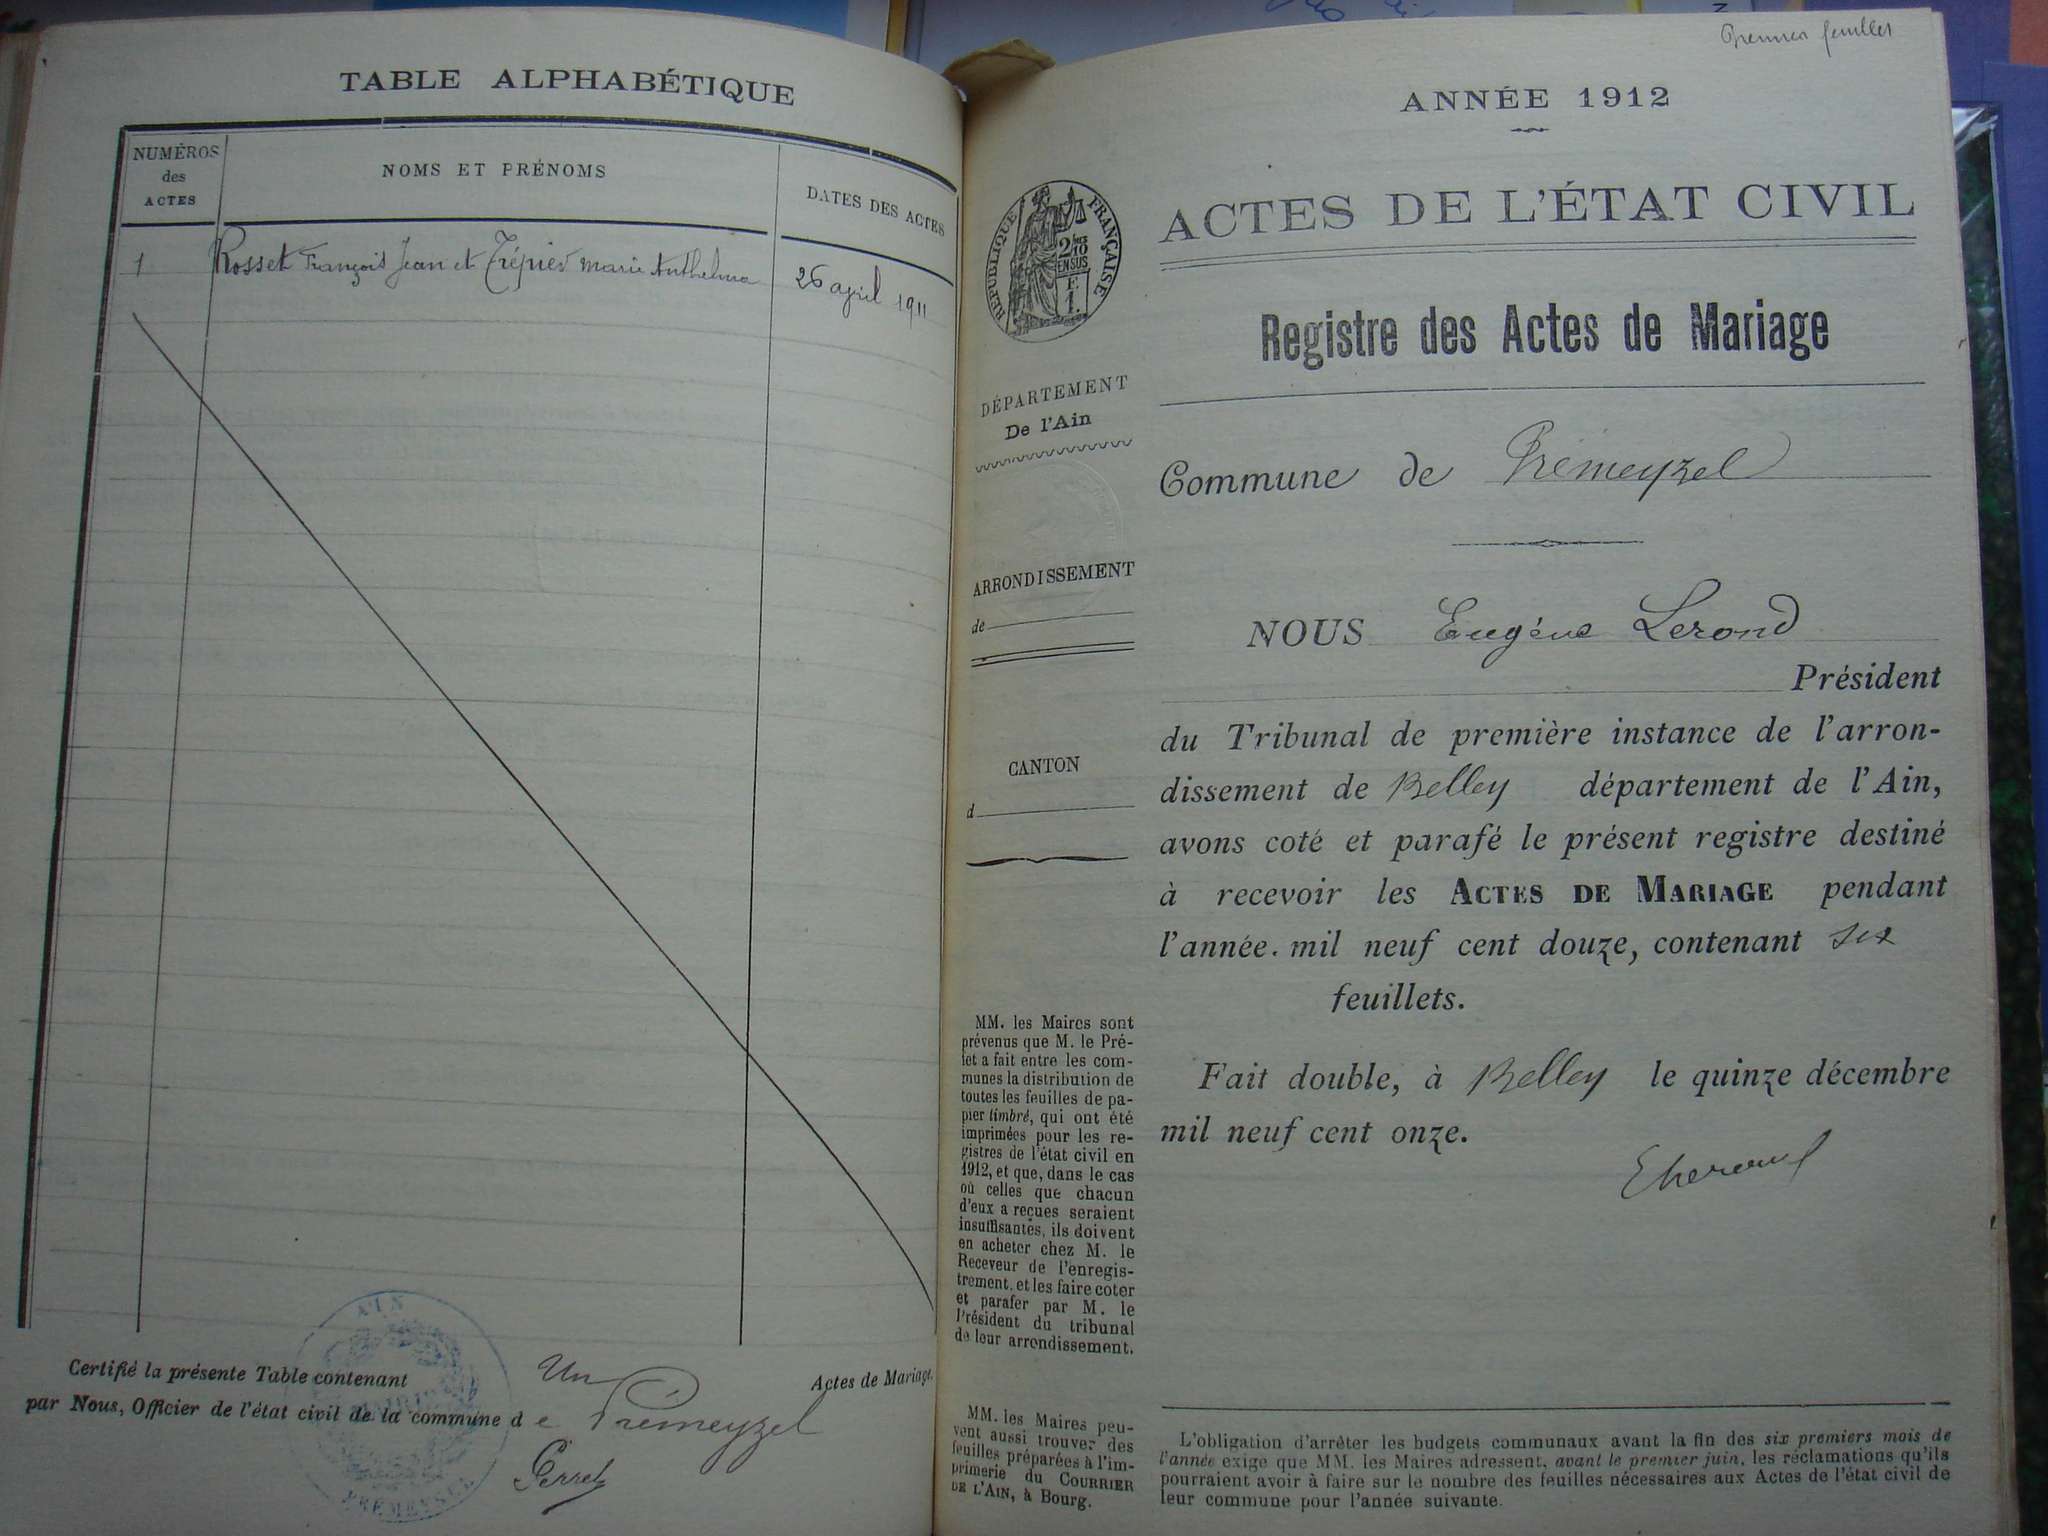 TABLE ALPHABÉTIQUE
NUMÉROS
des
ACTES
NOMS ET PRÉNOMS
DATES DES ACTES
1 Rosset François Jean et Trépier marie Anthelma 26 april 1911
Certifié la présente Table contenant Un Actes de Mariage.
par Nous, Officier de l'état civil de la commune d e Prémeyzel
Perret
AIN
MAIRIE
PRÉMEYZEL
Premier feuillet
ANNÉE 1912
RÉPUBLIQUE FRANÇAISE
2/10
EN SUS
ACTES DE L'ÉTAT CIVIL
Registre des Actes de Mariage
DÉPARTEMENT
De l'Ain
Commune de Prémeyzel
ARRONDISSEMENT
de
CANTON
d
NOUS Eugène Lerond
Président
du Tribunal de première instance de l'arron-
dissement de Belley département de l'Ain,
avons coté et parafé le présent registre destiné
à recevoir les ACTES DE MARIAGE pendant
l'année. mil neuf cent douze, contenant six
feuillets.
Fait double, à Belley le quinze décembre
mil neuf cent onze.
MM. les Maires sont
prévenus que M. le Pré-
fet a fait entre les com-
munes la distribution de
toutes les feuilles de pa-
pier timbré, qui ont été
imprimées pour les re-
gistres de l'état civil en
1912, et que, dans le cas
où celles que chacun
d'eux a reçues seraient
insuffisantes, ils doivent
en acheter chez M. le
Receveur de l'enregis-
trement, et les faire coter
et parafer par M. le
Président du tribunal
de leur arrondissement.
MM. les Maires peu-
vent aussi trouver des
feuilles préparées à l'im-
primerie du COURRIER
DE L'AIN, à Bourg.
L'obligation d'arrêter les budgets communaux avant la fin des six premiers mois de
l'année exige que MM. les Maires adressent, avant le premier juin, les réclamations qu'ils
pourraient avoir à faire sur le nombre des feuilles nécessaires aux Actes de l'état civil de
leur commune pour l'année suivante.